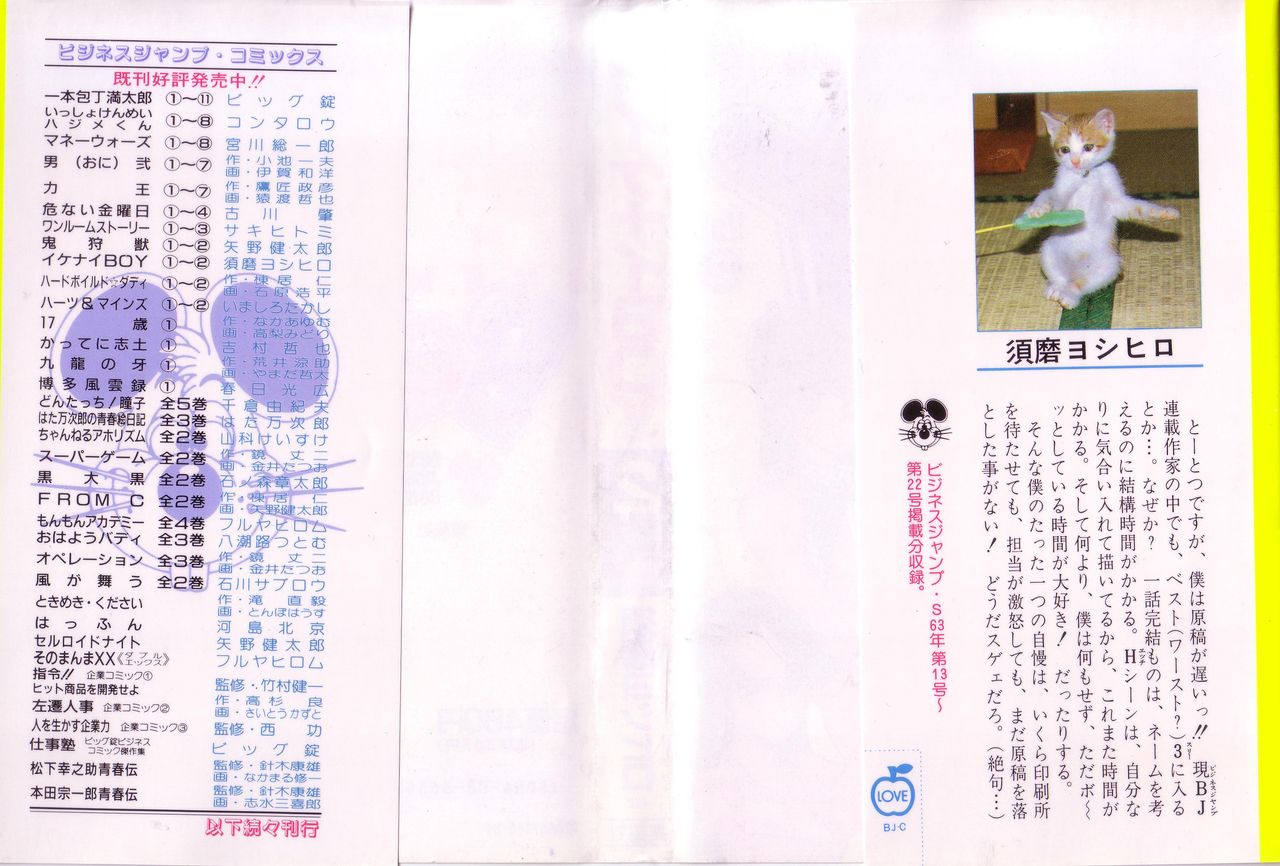 ビジネスジャンプ・コミックス
既刊好評発売中!!
一本包丁満太郎 ①〜⑪ ビッグ錠
いっしょけんめいハジメくん ①〜⑧ コンタロウ
マネーウォーズ ①〜⑧ 宮川総一郎
男(おに)弐 ①〜⑦ 作・小池一夫 画・伊賀和洋
力王 ①〜⑦ 作・鷹匠政彦 画・猿渡哲也
危ない金曜日 ①〜④ 古川肇
ワンルームストーリー ①〜③ サキヒトミ
鬼狩獣 ①〜② 矢野健太郎
イケナイBOY ①〜② 須磨ヨシヒロ
ハードボイルド☆ダディ ①〜② 作・棟居仁 画・石原浩平
ハーツ&マインズ ①〜② いましろたかし
17歳 ① 作・なかあゆむ 画・高梨みどり
かってに志士 ① 吉村哲也
九龍の牙 ① 作・荒井涼助 画・やまだ哲太
博多風雲録 ① 春日光広
どんたっち!瞳子 全5巻 千倉由紀夫
はた万次郎の青春絵日記 全3巻 はた万次郎
ちゃんねるアホリズム 全2巻 山科けいすけ
スーパーゲーム 全2巻 作・鏡丈二 画・金井たつお
黒大黒 全2巻 石ノ森章太郎
FROM C 全2巻 作・棟居仁 画・矢野健太郎
もんもんアカデミー 全4巻 フルヤヒロム
おはようバディ 全3巻 八潮路つとむ
オペレーション 全3巻 作・鏡丈二 画・金井たつお
風が舞う 全2巻 石川サブロウ
ときめき・ください 作・滝直毅 画・とんぼはうす
はっふん 河島北京
セルロイドナイト 矢野健太郎
そのまんまXX《ダブルエックス》 フルヤヒロム
指令!! 企業コミック①
ヒット商品を開発せよ 監修・竹村健一
左遷人事 企業コミック② 作・高杉良 画・さいとうかずと
人を生かす企業力 企業コミック③ 監修・西功
仕事塾 ビッグ錠ビジネスコミック傑作集 ビッグ錠
松下幸之助青春伝 監修・針木康雄 画・なかまる修一
本田宗一郎青春伝 監修・針木康雄 画・志水三喜郎
以下続々刊行
須磨ヨシヒロ
とーとつですが、僕は原稿が遅いっ!! 現BJ
ビジネスジャンプ
連載作家の中でも、ベスト(ワースト?)3に入る
スリー
とか…。なぜか? 一話完結ものは、ネームを考
えるのに結構時間がかかる。Hシーンは、自分な
エッチ
りに気合い入れて描いてるから、これまた時間が
かかる。そして何より、僕は何もせず、ただボ〜
ッとしている時間が大好き! だったりする。
そんな僕のたった一つの自慢は、いくら印刷所
を待たせても、担当が激怒しても、まだ原稿を落
とした事がない! どうだスゲェだろ。(絶句…)
ビジネスジャンプ・S63年第13号〜
第22号掲載分収録。
LOVE
BJ·C